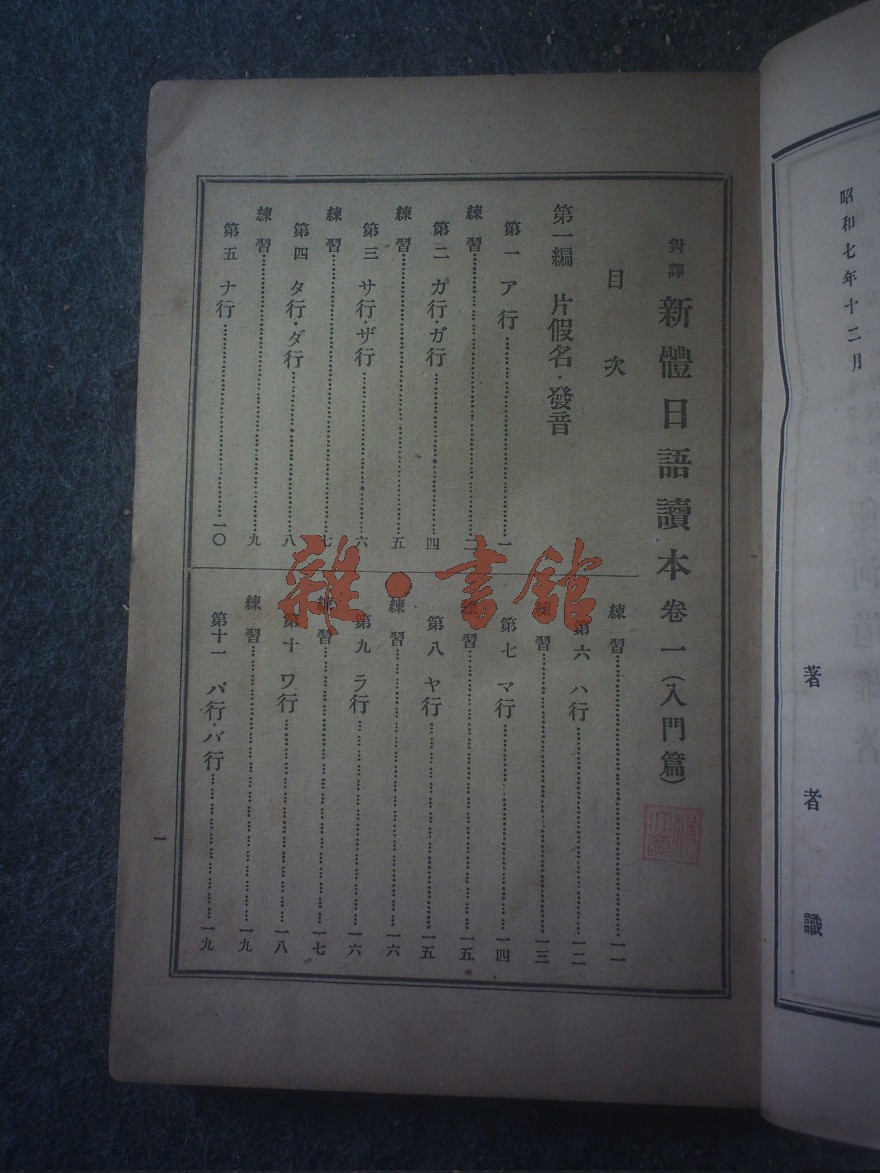 昭和七年十二月
著者識
對譯 新體日語讀本卷一(入門篇)
目次
第一編 片假名·發音
第一 ア行……一
練習……二
第二 カ行·ガ行……四
練習……五
第三 サ行·ザ行……六
練習……七
第四 タ行·ダ行……八
練習……九
第五 ナ行……一〇
練習……一一
第六 ハ行……一二
練習……一三
第七 マ行……一四
練習……一五
第八 ヤ行……一五
練習……一六
第九 ラ行……一六
練習……一七
第十 ワ行……一八
練習……一九
第十一 パ行·バ行……一九
一
雜·書館